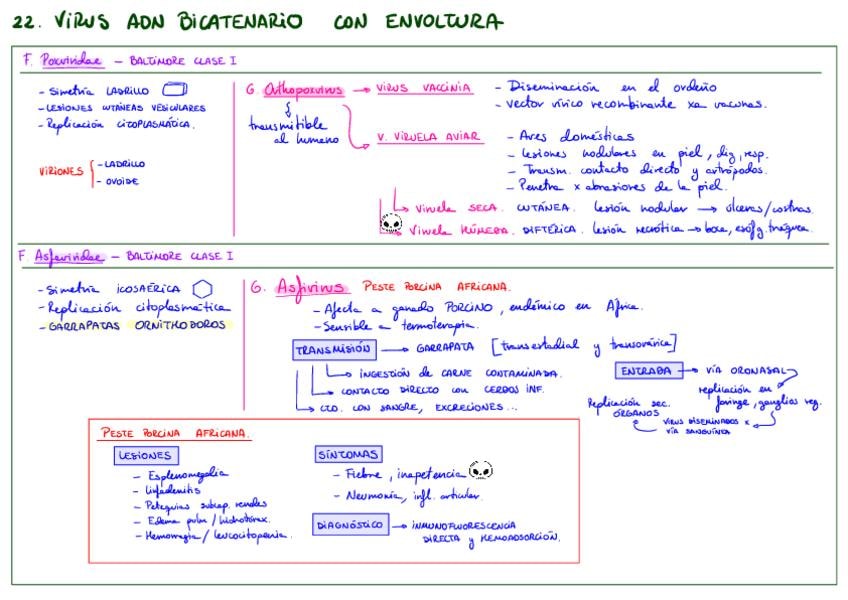 22. VIRUS ADN BICATENARIO CON ENVOLTURA
F. Poxviridae – BALTIMORE CLASE I
- Simetría LADRILLO
- LESIONES CUTÁNEAS VESICULARES
- Replicación CITOPLASMÁTICA.
VIRIONES
- LADRILLO
- OVOIDE
G. Orthopoxvirus → VIRUS VACCINIA
transmitible al humano
- Diseminación en el ordeño
- Vector vírico recombinante xa vacunas.
V. VIRUELA AVIAR
- Aves domésticas
- Lesiones nodulares en piel, dig, resp.
- Transm. contacto directo y artrópodos.
- Penetra x abrasiones de la piel.
Viruela SECA. CUTÁNEA. Lesión nodular → úlceras/costras.
Viruela HÚMEDA. DIFTÉRICA. Lesión necrótica → boca, esófg. tráquea.
F. Asfarviridae – BALTIMORE CLASE I
- Simetría ICOSAÉRICA
- Replicación citoplasmática
- GARRAPATAS ORNITHODOROS
G. Asfivirus PESTE PORCINA AFRICANA.
- Afecta a ganado PORCINO, endémico en África.
- Sensible a termoterapia.
TRANSMISIÓN → GARRAPATA [transestadial y transovárica]
INGESTIÓN de CARNE CONTAMINADA.
CONTACTO DIRECTO con CERDOS INF.
CTO. CON SANGRE, EXCRECIONES...
ENTRADA → VÍA ORONASAL
replicación en faringe, ganglios reg.
VIRUS DISEMINADOS x VÍA SANGUÍNEA
Replicación sec. ÓRGANOS
PESTE PORCINA AFRICANA.
LESIONES
- Esplenomegalia
- Linfadenitis
- Petequias subcap. renales
- Edema pulm / hidrotórax.
- Hemorragia / leucocitopenia.
SÍNTOMAS
- Fiebre, inapetencia
- Neumonía, infl. articular.
DIAGNÓSTICO → INMUNOFLUORESCENCIA
DIRECTA y HEMOADSORCIÓN.